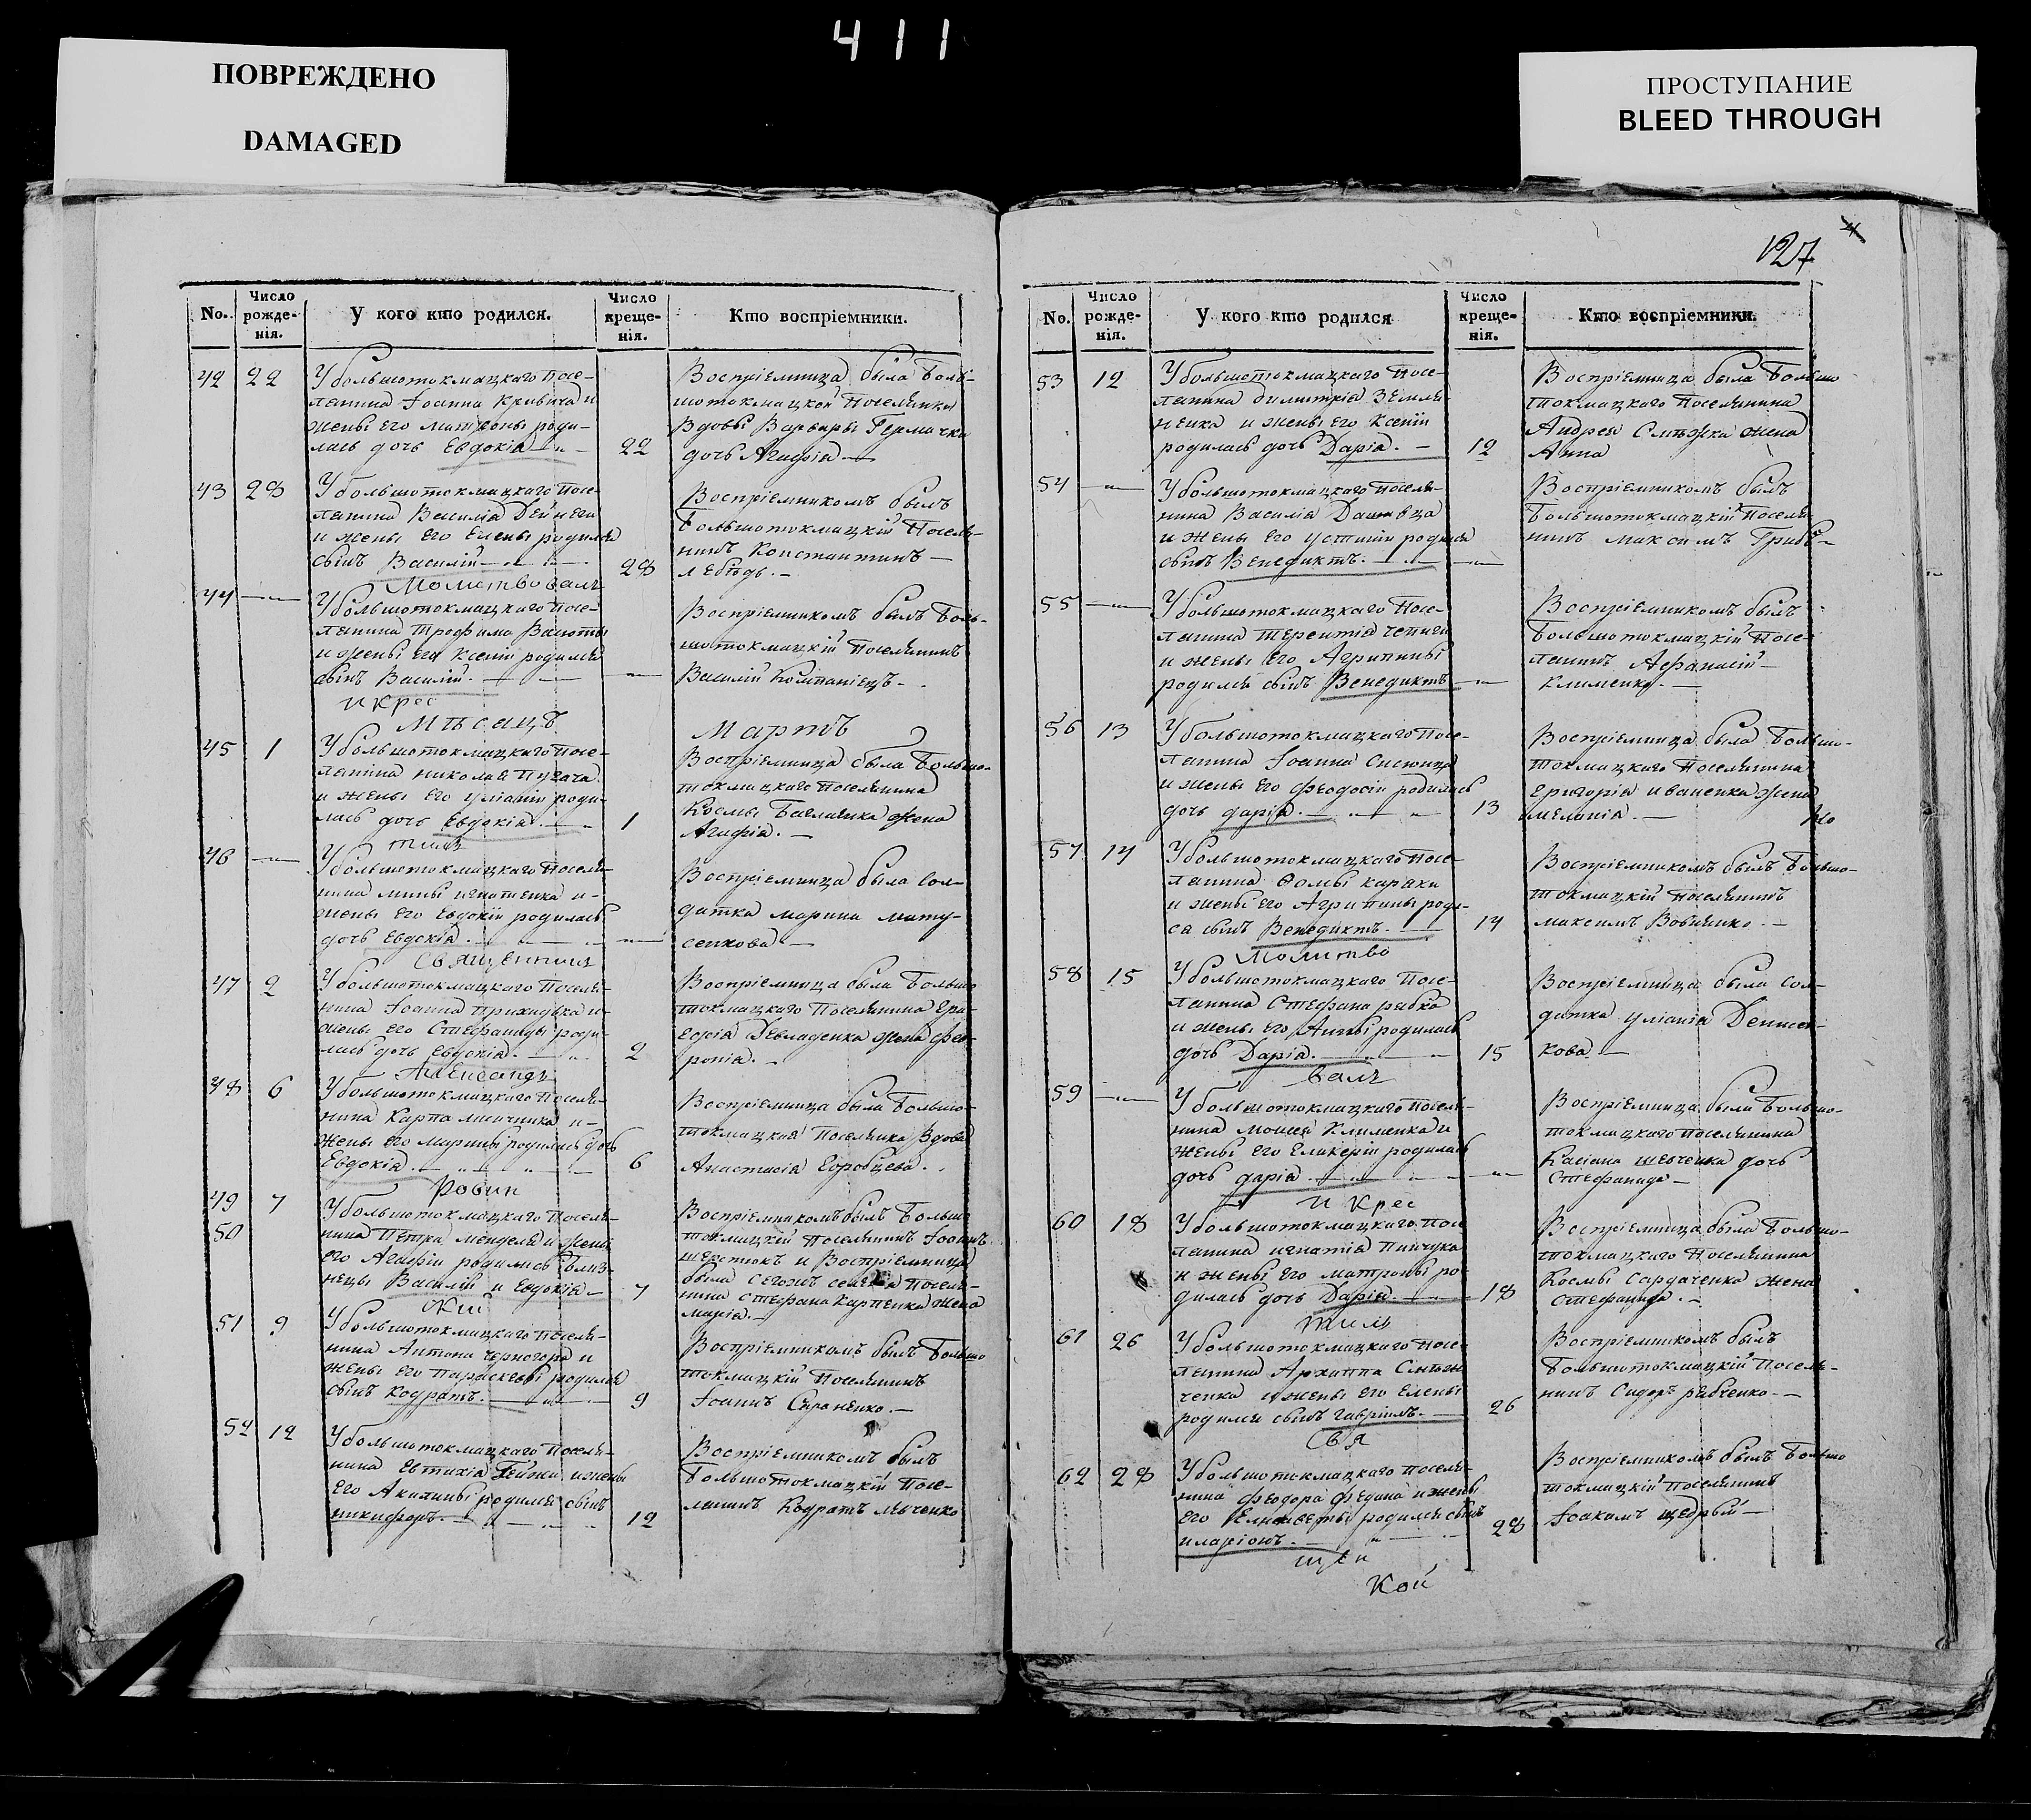 411
ПОВРЕЖДЕНО
DAMAGED
ПРОСТУПАНИЕ
BLEED THROUGH
127
No.
Число рожде-нія.
У кого кто родился.
Число креще-нія.
Кто воспріемники.
42 22
У большотокмацкаго посе-
лянина Іоанна Кривича и
жены его Матроны роди-
лась дочь Евдокія
22
Воспріемница была боль-
шотокмацкой поселянки
вдовы Варвары
дочь Агафія
43 28
У большотокмацкаго посе-
лянина Василія Дейнеги
и жены его Елены родился
сынъ Василій
28
Воспріемникомъ былъ
большотокмацкій поселя-
нинъ Константинъ
Лебѣдь.
Молитвовалъ
44
У большотокмацкаго посе-
лянина Трофима
и жены его Ксеніи родился
сынъ Василій.
Воспріемникомъ былъ боль-
шотокмацкій поселянинъ
Василій Компаніецъ.
и крес
Мѣсяцъ
Мартъ
45 1
У большотокмацкаго посе-
лянина Николая Пугача
и жены его Уліаніи роди-
лась дочь Евдокія.
1
Воспріемница была большо-
токмацкаго поселянина
Космы жена
Агафія.
тилъ
46
У большотокмацкаго поселя-
нина Мины Игнатенка и
жены его Евдокіи родилась
дочь Евдокія.
Воспріемница была сол-
датка Марина Мату-
сенкова
Священникъ
47 2
У большотокмацкаго поселя-
нина Іоанна Прихидька и
жены его Стефаниды роди-
лась дочь Евдокія.
2
Воспріемница была большо
токмацкаго поселянина Гри-
жена Фев-
ронія.
Александръ
48 6
У большотокмацкаго поселя-
нина Карпа и
жены его Марины родилась дочь
Евдокія.
6
Воспріемница была большо-
токмацкая поселянка вдова
Анастасія
Ровин
49 7
50
У большотокмацкаго поселя-
нина Петра и жены
его Агафіи родились близ-
нецы Василій и Евдокія
7
Воспріемникомъ былъ большо
токмацкій поселянинъ Іоаннъ
Шерстюкъ и воспріемница
была сегожъ селенія поселя-
нина Стефана Карпенка жена
Марія.
скій
51 9
У большотокмацкаго поселя-
нина Антона Черногора и
жены его Параскевы родился
сынъ Кодратъ.
9
Воспріемникомъ былъ большо
токмацкій поселянинъ
Іоаннъ
52 12
У большотокмацкаго поселя-
нина Евтихія и жены
его Акилины родился сынъ
Никифоръ.
12
Воспріемникомъ былъ
большотокмацкій посе-
лянинъ Кодратъ Левченко
No.
Число рожде-нія.
У кого кто родился
Число креще-нія.
Кто воспріемники.
53 12
У большотокмацкаго посе-
лянина Димитрія Земля-
ненка и жены его Ксеніи
родилась дочь Дарія.
12
Воспріемница была большо
токмацкаго поселянина
Андрея жена
Анна
54
У большотокмацкаго поселя-
нина Василія
и жены его Устиніи родился
сынъ Венедиктъ.
Воспріемникомъ былъ
большотокмацкій поселя-
нинъ Максимъ
55
У большотокмацкаго посе-
лянина Терентія Чепиги
и жены его Агрипины
родился сынъ Венедиктъ
Воспріемникомъ былъ
большотокмацкій посе-
лянинъ Афанасій
Клименко.
56 13
У большотокмацкаго посе-
лянина Іоанна
и жены его Феодосіи родилась
дочь Дарія.
13
Воспріемница была большо-
токмацкаго поселянина
Григорія Иваненка жена
Меланія.
57 14
У большотокмацкаго посе-
лянина Ѳомы
и жены его Агрипины роди-
ся сынъ Венедиктъ.
14
Воспріемникомъ былъ большо-
токмацкій поселянинъ
Максимъ
Молитво
58 15
У большотокмацкаго посе-
лянина Стефана Рябка
и жены его Анны родилась
дочь Дарія.
15
Воспріемница была сол-
датка Уліанія Денисен-
кова.
валъ
59
У большотокмацкаго поселя-
нина Моисея Клименка и
жены его Гликеріи родилась
дочь Дарія.
Воспріемница была большо-
токмацкаго поселянина
Касіана Шевченка дочь
Стефанида
и крес
60 18
У большотокмацкаго посе
лянина Игнатія Пинчука
и жены его Матроны ро-
дилась дочь Дарія.
18
Воспріемница была большо-
токмацкаго поселянина
Космы Сардаченка жена
Стефанида.
тилъ
61 26
У большотокмацкаго посе-
лянина Архиппа
ченка и жены его Елены
родился сынъ Гавріилъ.
26
Воспріемникомъ былъ
большотокмацкій поселя-
нинъ Сидоръ Рябченко
Свя
62 28
У большотокмацкаго поселя-
нина Феодора и жены
его Елисаветы родился сынъ
Иларіонъ.
28
Воспріемникомъ былъ большо
токмацкій поселянинъ
Іоакимъ Щедрый
щен
кой